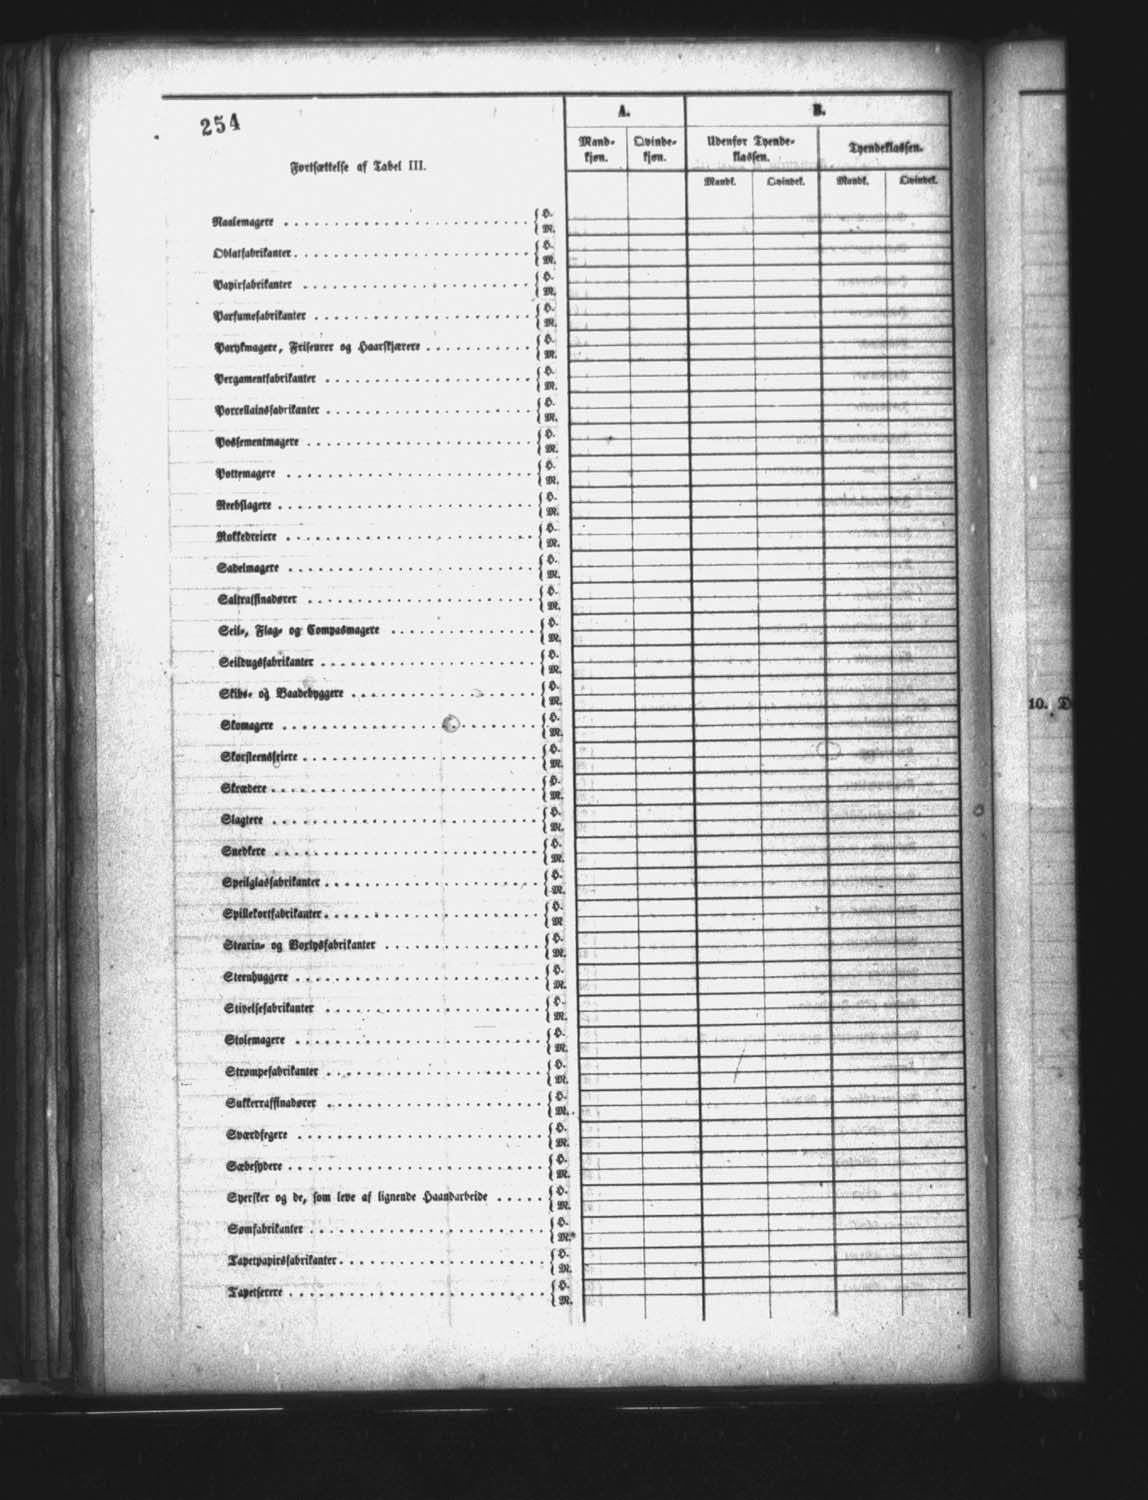 254
Fortsættelse af Tabel III.
A. B.
Mand- kjøn. Qvinde- kjøn. Udenfor Tyende- klassen. Tyendeklassen.
Mandk. Qvindek. Mandk. Qvindek.
Naalemagere { H. M.
Oblatfabrikanter { H. M.
Papirfabrikanter { H. M.
Parfumefabrikanter { H. M.
Parykmagere, Friseurer og Haarskjærere { H. M.
Pergamentfabrikanter { H. M.
Porcellainsfabrikanter { H. M.
Possementmagere { H. M.
Pottemagere { H. M.
Reebslagere { H. M.
Rokkedreiere { H. M.
Sadelmagere { H. M.
Saltraffinadører { H. M.
Seil-, Flag- og Compasmagere { H. M.
Seildugsfabrikanter { H. M.
Skibs- og Baadebyggere { H. M.
Skomagere { H. M.
Skorsteensfeiere { H. M.
Skrædere { H. M.
Slagtere { H. M.
Snedkere { H. M.
Speilglasfabrikanter { H. M.
Spillekortfabrikanter { H. M
Stearin- og Voxlysfabrikanter { H. M.
Steenhuggere { H. M.
Stivelsefabrikanter { H. M.
Stolemagere { H. M.
Strømpefabrikanter { H. M.
Sukkerraffinadører { H. M.
Sværdfegere { H. M.
Sæbesydere { H. M.
Syersker og de, som leve af lignende Haandarbeide { H. M.
Sømfabrikanter { H. M.
Tapetpapirsfabrikanter { H. M.
Tapetserere { H. M.
10. D